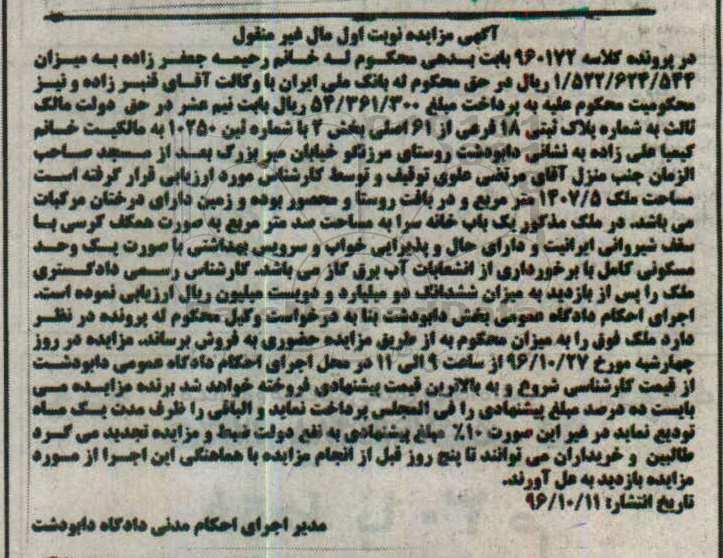 آگهی مزایده نوبت اول مال غیر منقول
در پرونده کلاسه ۹۶۰۱۷۲ بابت بدهی محکوم له خانم رحیمه جعفر زاده به میزان
۱/۵۲۲/۶۲۴/۵۴۴ ریال در حق محکوم له بانک ملی ایران با وکالت آقای قنبر زاده و نیز
محکومیت محکوم علیه به پرداخت مبلغ ۵۴/۳۶۱/۳۰۰ ریال بابت نیم عشر در حق دولت مالک
ثالث به شماره پلاک ثبتی ۱۸ فرعی از ۶۱ اصلی بخش ۲ با شماره ثبن ۱۰۲۵۰ به مالکیت خانم
کیمیا علی زاده به نشانی دابودشت روستای مرزنگو خیابان میر بزرگ بعد از مسجد صاحب
الزمان جنب منزل آقای مرتضی علوی توقیف و توسط کارشناس مورد ارزیابی قرار گرفته است
مساحت ملک ۱۴۰۷/۵ متر مربع و در بافت روستا و محصور بوده و زمین دارای درختان مرکبات
می باشد. در ملک مذکور یک باب خانه سرا به مساحت صد متر مربع به صورت همکف کرسی با
سقف شیروانی ایرانیت و دارای حال و پذیرایی خواب و سرویس بهداشتی با صورت یک وحد
مسکونی کامل با برخورداری از انشعابات آب برق گاز می باشد. کارشناس رسمی دادگستری
ملک را پس از بازدید به میزان ششدانگ دو میلیارد و دویست میلیون ریال ارزیابی نموده است.
اجرای احکام دادگاه عمومی بخش دابودشت بنا به درخواست وکیل محکوم له پرونده در نظر
دارد ملک فوق را به میزان محکوم به از طریق مزایده حضوری به فروش برساند. مزایده در روز
چهارشنبه مورخ ۹۶/۱۰/۲۷ از ساعت ۹ الی ۱۱ در محل اجرای احکام دادگاه عمومی دابودشت
از قیمت کارشناسی شروع و به بالاترین قیمت پیشنهادی فروخته خواهد شد برنده مزایده می
بایست ده درصد مبلغ پیشنهادی را فی المجلس پرداخت نماید و الباقی را ظرف مدت یک ماه
تودیع نماید در غیر این صورت ۱۰٪ مبلغ پیشنهادی به نفع دولت ضبط و مزایده تجدید می گردد
طالبین و خریداران می توانند تا پنج روز قبل از انجام مزایده با هماهنگی این اجرا از مورد
مزایده بازدید به عل آورند.
تاریخ انتشار: ۹۶/۱۰/۱۱
مدیر اجرای احکام مدنی دادگاه دابودشت